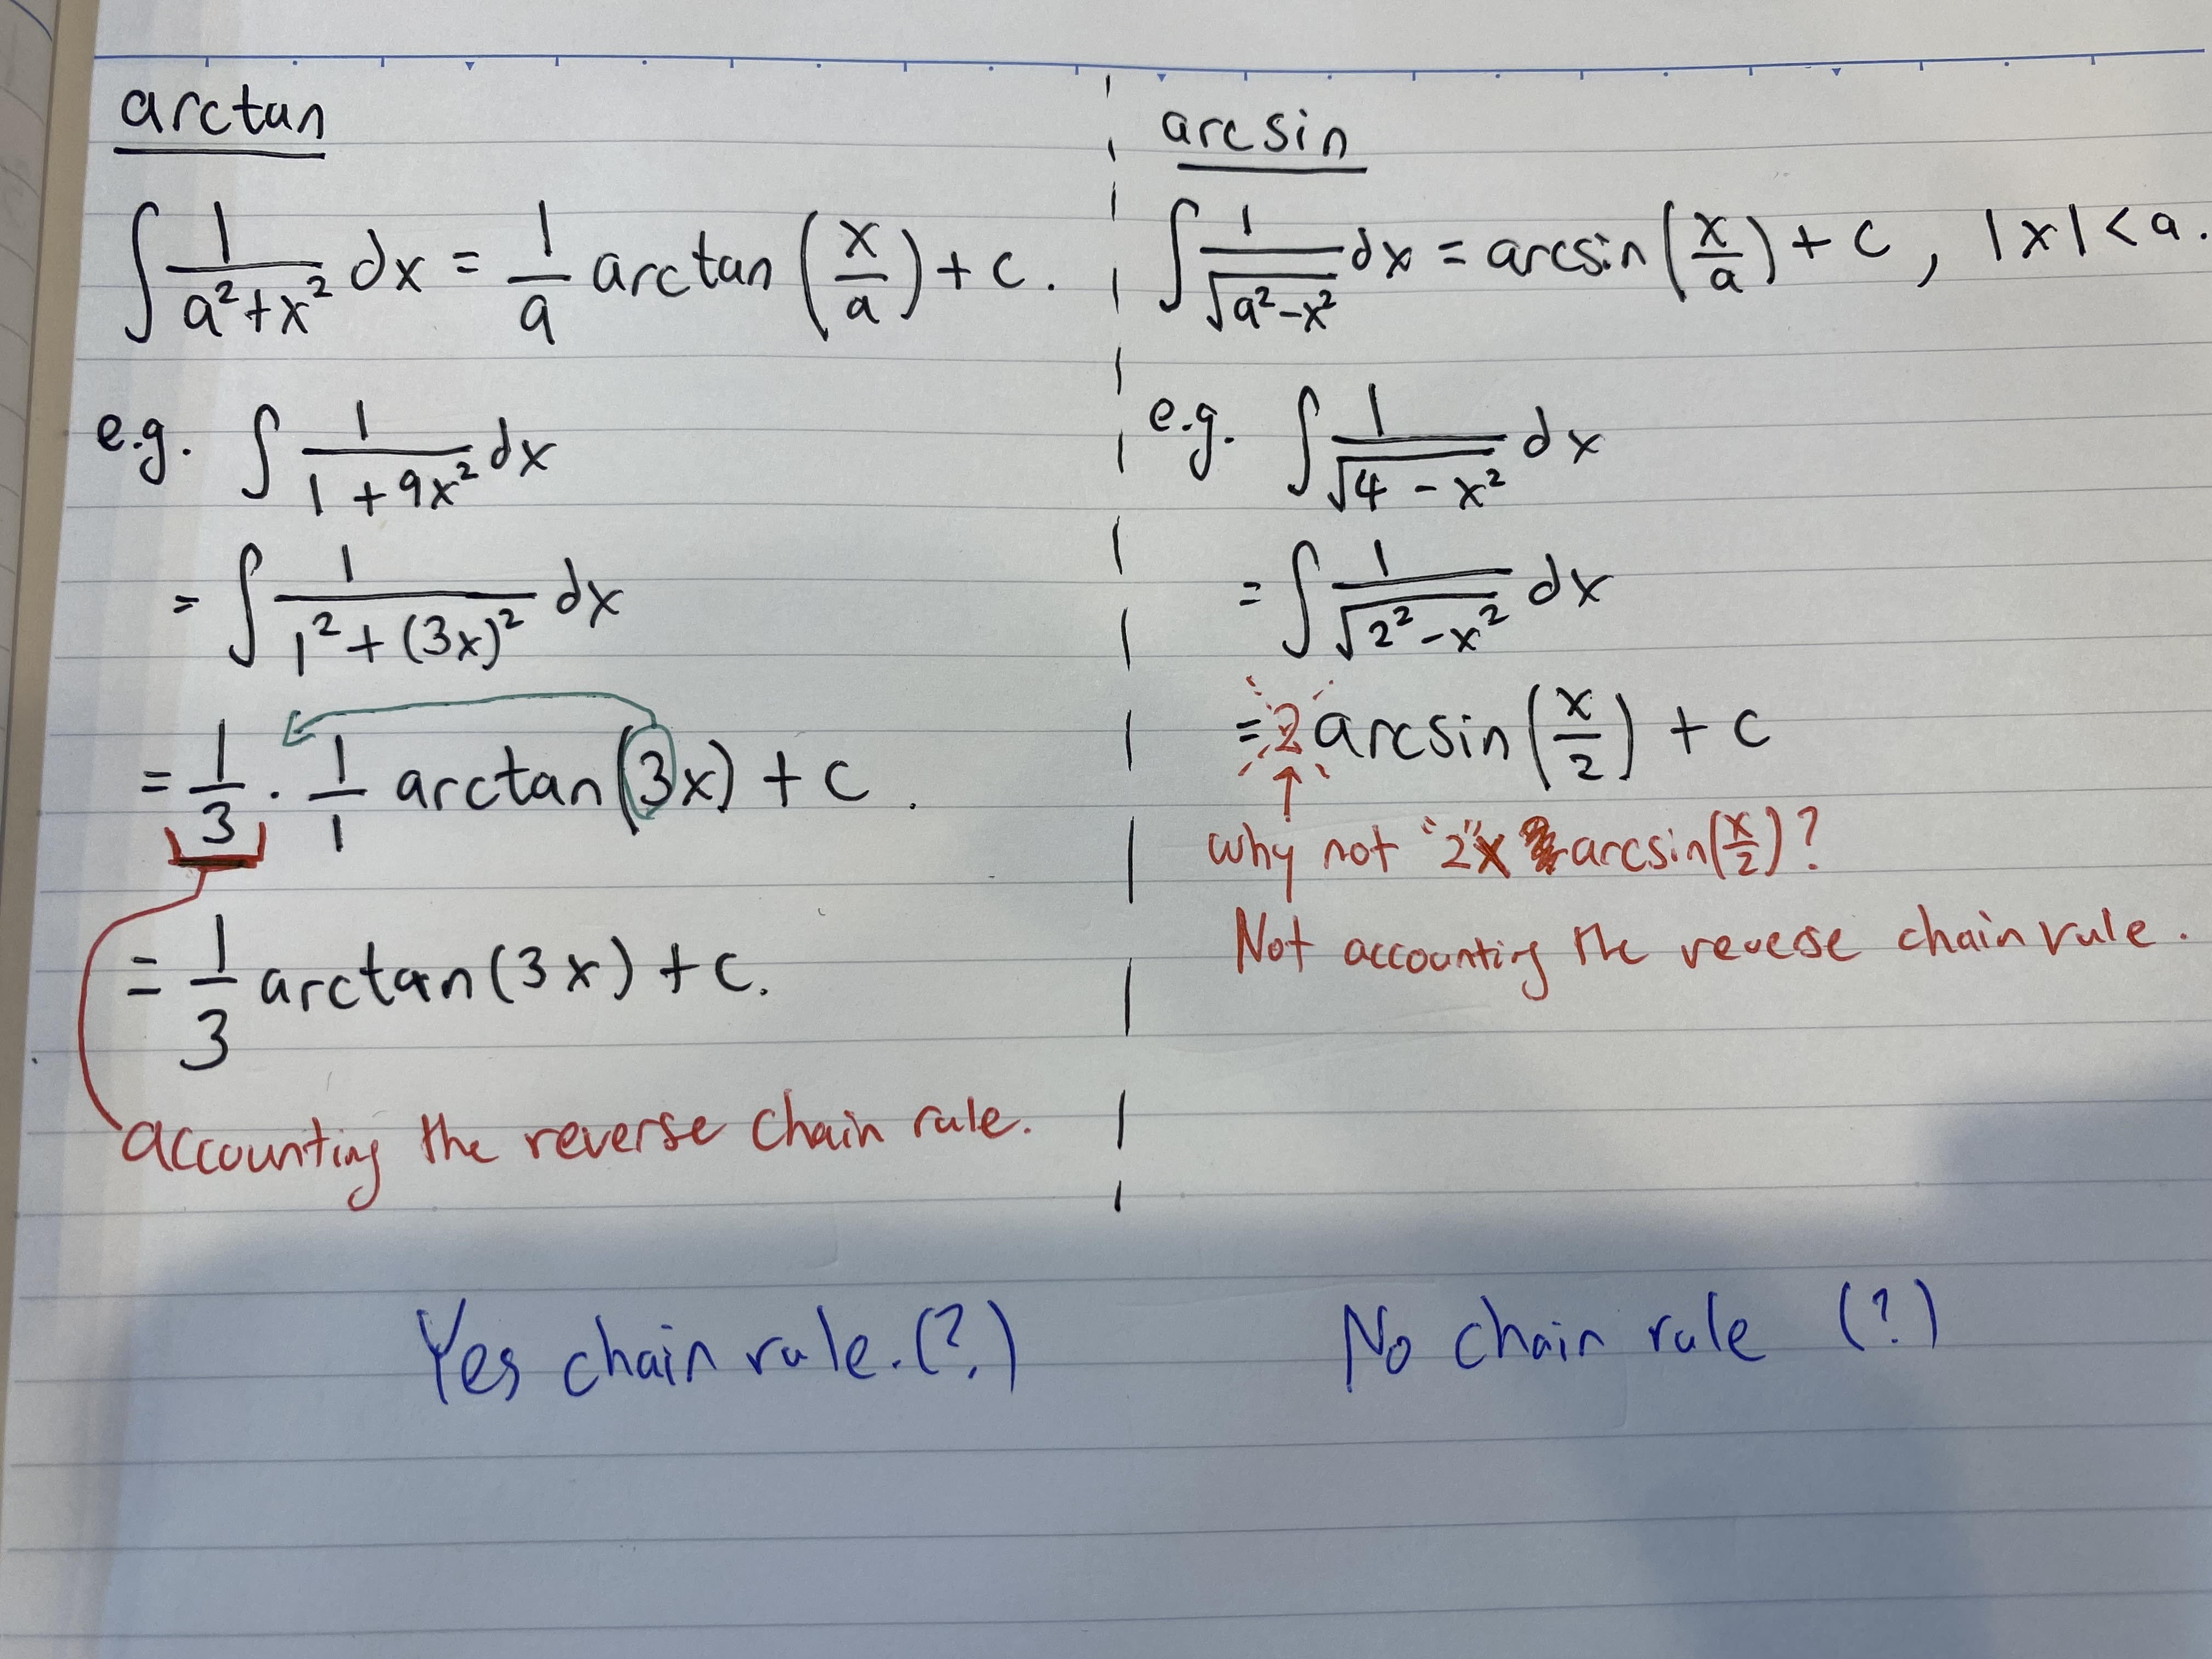 arctan
∫ 1/(a²+x²) dx = 1/a arctan (x/a) + c.
e.g. ∫ 1/(1 + 9x²) dx
= ∫ 1/(1² + (3x)²) dx
= 1/3 · 1/1 arctan (3x) + c.
= 1/3 arctan (3x) + c.
accounting the reverse chain rule.
Yes chain rule. (?)
arcsin
∫ 1/√(a²-x²) dx = arcsin (x/a) + c, |x| < a.
e.g. ∫ 1/√(4 - x²) dx
= ∫ 1/√(2² - x²) dx
= 2 arcsin (x/2) + c
why not "2"x arcsin(x/2)?
Not accounting the reverse chain rule.
No chain rule (?)